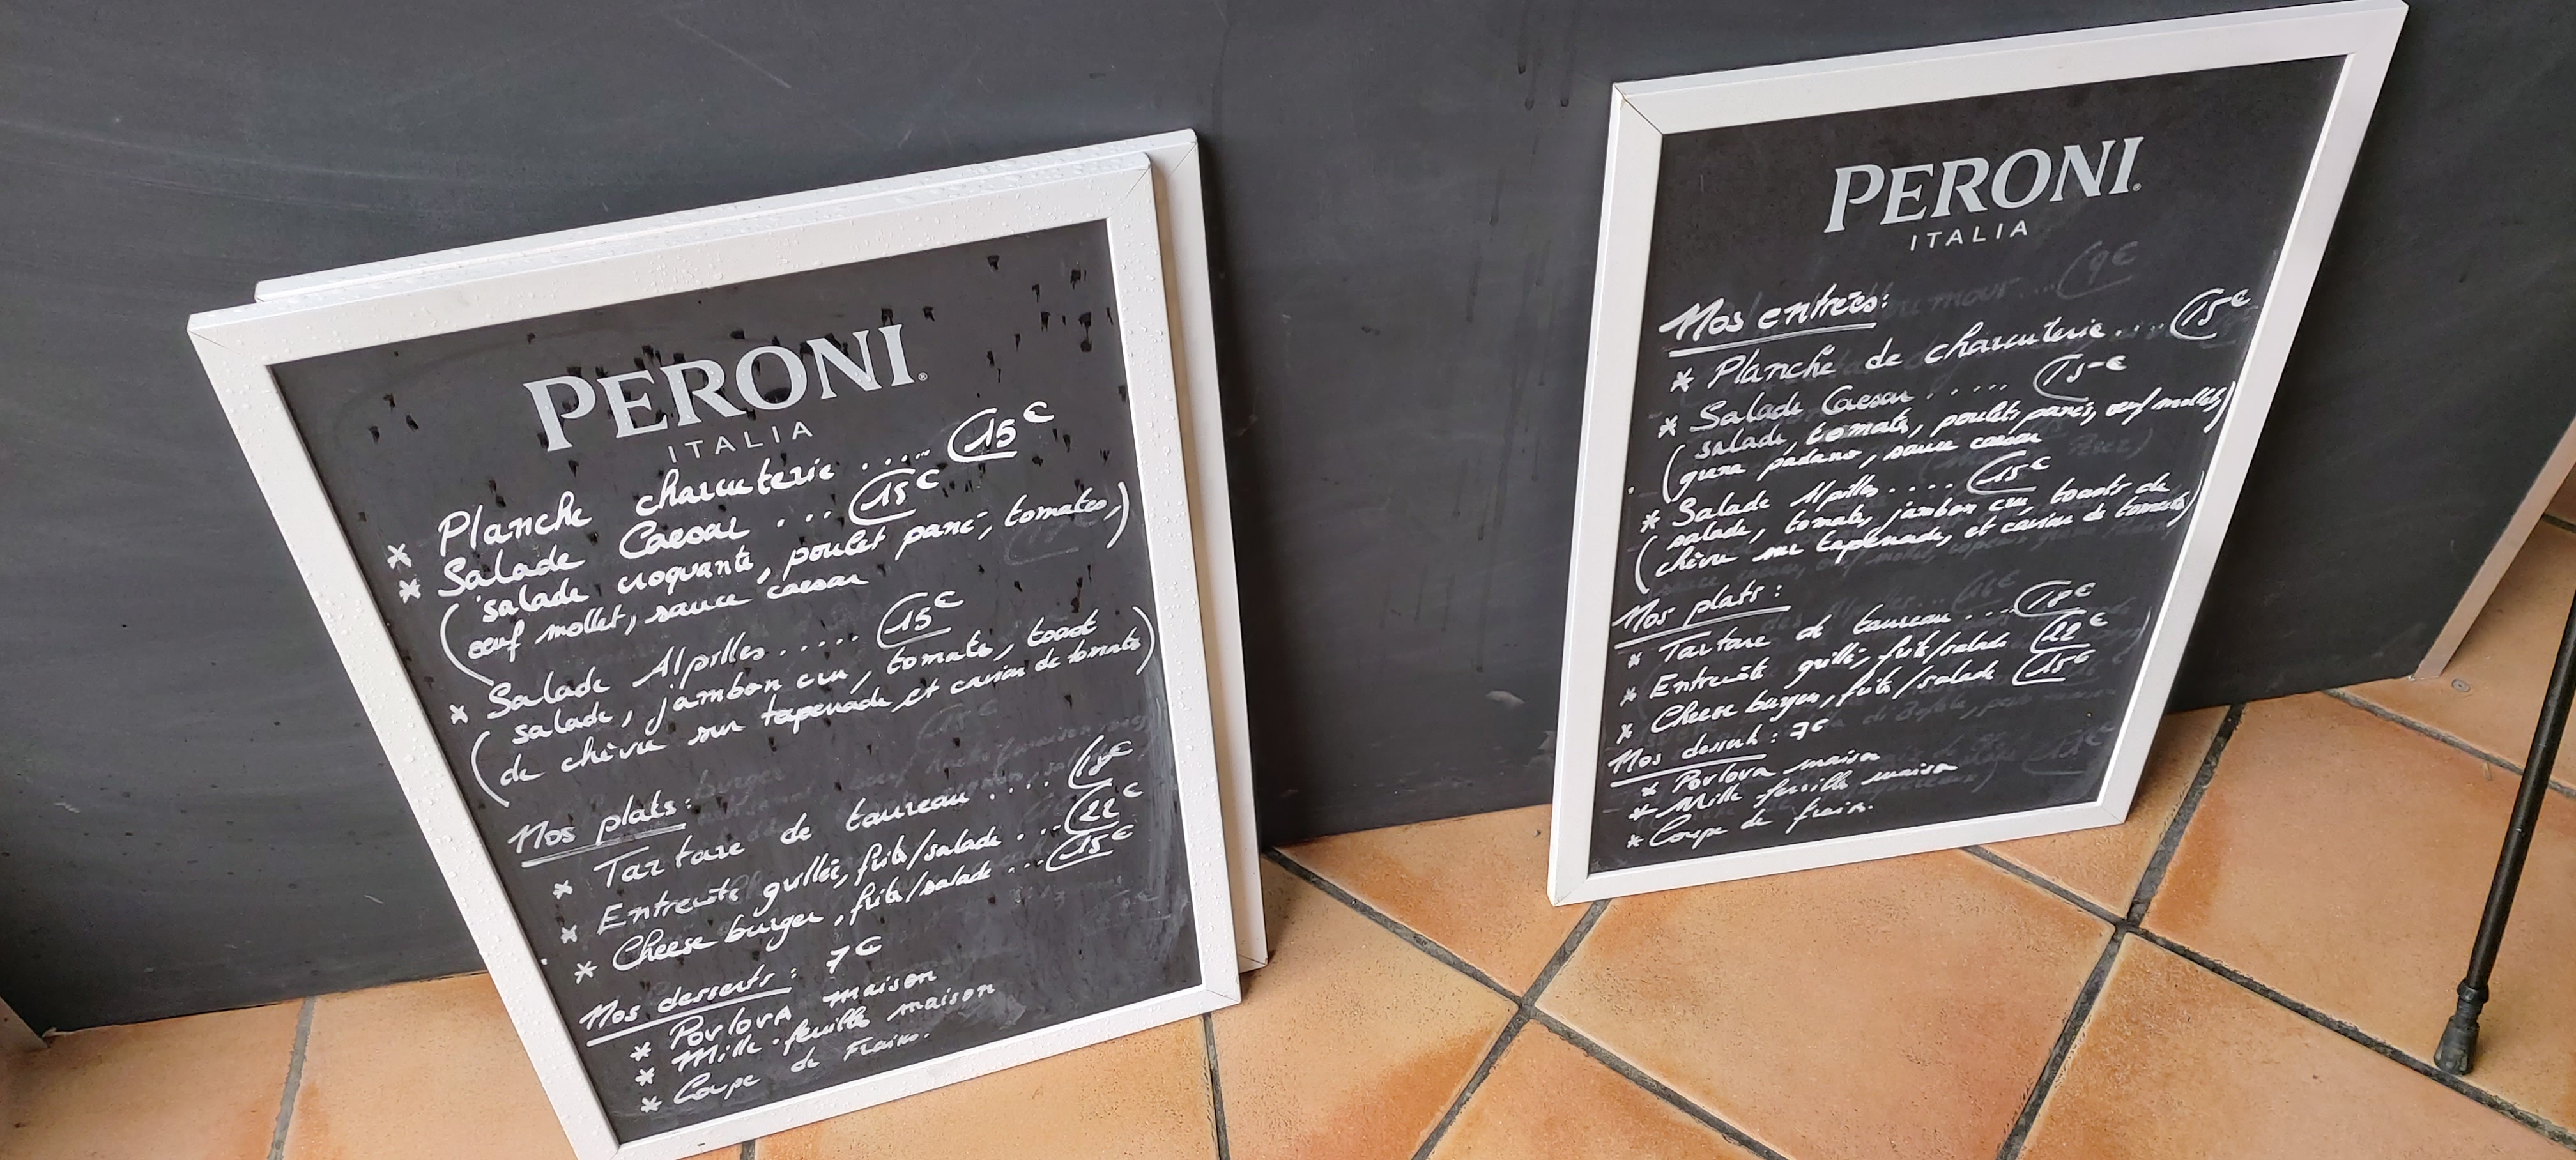 PERONI
ITALIA
* Planche charcuterie ..... 15€
* Salade Caesar ... 15€
(salade croquante, poulet pané, tomates,)
oeuf mollet, sauce caesar
* Salade Alpilles ..... 15€
(salade, jambon cru, tomate, toast
de chèvre sur tapenade et caviar de tomate)
Nos plats:
* Tartare de taureau .... 18€
* Entrecôte grillée, frite/salade ... 22€
* Cheese burger, frite/salade ... 15€
Nos desserts : 7€
* Pavlova maison
* Mille-feuille maison
* Coupe de Frais.
PERONI
ITALIA
Nos entrées:
* Planche de charcuterie .... 15€
* Salade Caesar .... 15€
(salade, tomate, poulet pané, oeuf mollet)
grana padano, sauce caesar
* Salade Alpilles .... 15€
(salade, tomate, jambon cru, toasts de
chèvre sur tapenade, et caviar de tomate)
Nos plats :
* Tartare de taureau ... 18€
* Entrecôte grillé, frite/salade 22€
* Cheese burger, frite/salade 15€
Nos dessert : 7€
* Pavlova maison
* Mille feuille maison
* Coupe de frais.